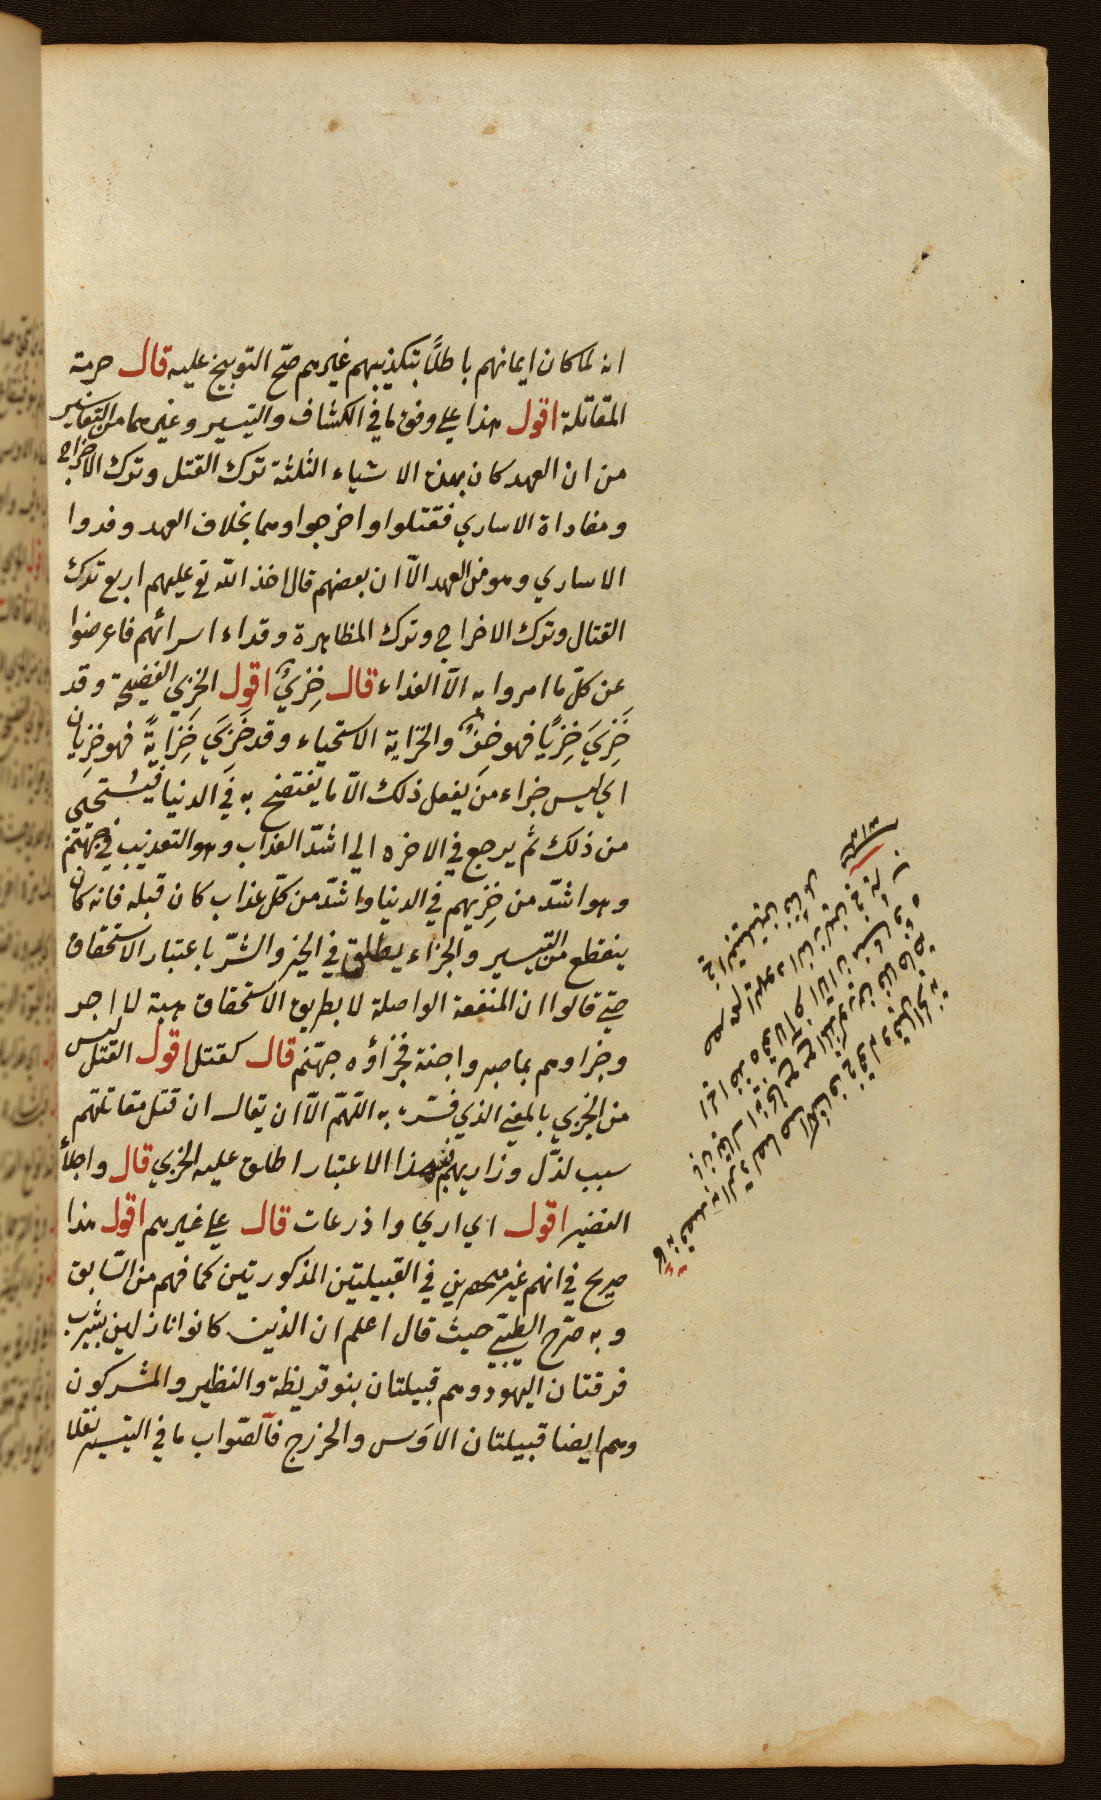 انه لما كان ايمانهم باطلًا بتكذيبهم غيرهم صحّ التوبيخ عليه قال حرمة
المقاتلة اقول هذا على وفق ما في الكشاف والتيسير وغيرهما من التفاسير
من ان العهد كان بهذه الاشياء الثلثة ترك القتل وترك الاخراج
ومفاداة الاساري فقتلوا واخرجوا وهما بخلاف العهد وفدوا
الاساري وهو من العهد الّا ان بعضهم قال اخذ الله تع عليهم اربع ترك
القتال وترك الاخراج وترك المظاهرة وفداء اسرائهم فاعرضوا
عن كلّ ما امروا به الّا الفداء قال خِزيٌ اقول الخِزي الفضيحة وقد
خَزِيَ خِزيًا فهو خزٍ والخزاية الاستحياء وقد خَزِيَ خَزايةً فهو خزيان
اي ليس جزاء من يفعل ذلك الّا ما يفتضح به في الدنيا فيستحيى
من ذلك ثم يرجع في الاخره الي اشدّ العذاب وهو التعذيب في جهنّم
وهو اشدّ من خِزيهم في الدنيا واشدّ من كلّ عذاب كان قبله فانه كان
ينقطع من التيسير والجزاء يطلق في الخير والشرّ باعتبار الاستحقاق
حتى قالوا ان المنفعة الواصلة لا بطريق الاستحقاق هبة لا اجر
وجزاوهم بما صبروا جنة فجزاؤه جهنّم قال كقتل اقول القتل ليس
من الخزي بالمعني الذي فسّر به اللّهمّ الّا ان يقال ان قتل مقاتلتهم
سبب لذلّ وذراريهم فبهذا الاعتبار اطلق عليه الخزي قال واجلاء
النضير اقول اي اريحا واذرعات قال على غيرهم اقول هذا
صريح في انهم غير منحصرين في القبيلتين المذكورتين كما فهم من السّابق
وبه صرّح الطيبي حيث قال اعلم ان الذين كانوا نازلين بيثرب
فرقتان اليهود وهم قبيلتان بنو قريظة والنظير والمشركون
وهم ايضا قبيلتان الاوَس والخزرج فالصّواب ما في التيسير نقلا